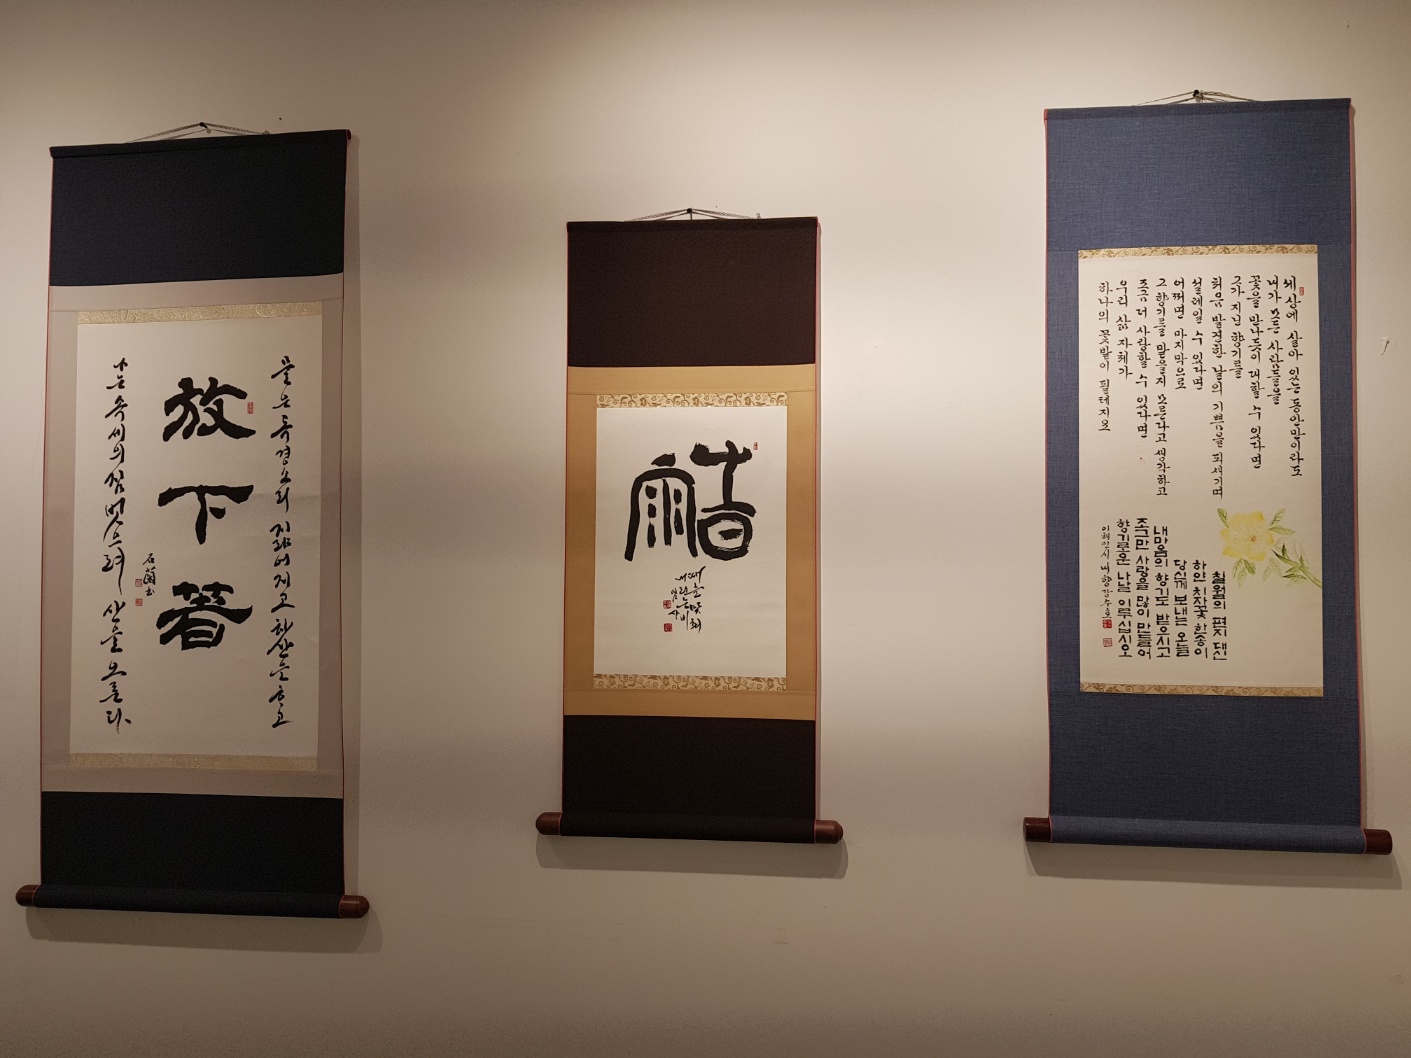 물은 독경소리
放下著
나는 속세의 짐 벗으려 산을 오른다
石蘭
때를 맞춰
세상에 살아 있는 동안만이라도
내가 모든 사람들을
꽃을 만나듯이 대할 수 있다면
그가 지닌 향기를
처음 발견한 날의 기쁨을 되새기며
설레일 수 있다면
어쩌면 마지막으로
그 향기를 맡을지 모른다고 생각하고
조금 더 사랑할 수 있다면
우리 삶 자체가
하나의 꽃밭이 될테지요
칠월의 편지 대신
하얀 치자꽃 한송이
당신께 보내는 오늘
내 마음의 향기도 받으시고
조그만 사랑을 많이 만들어
향기로운 나날 이루십시오
이해인 시